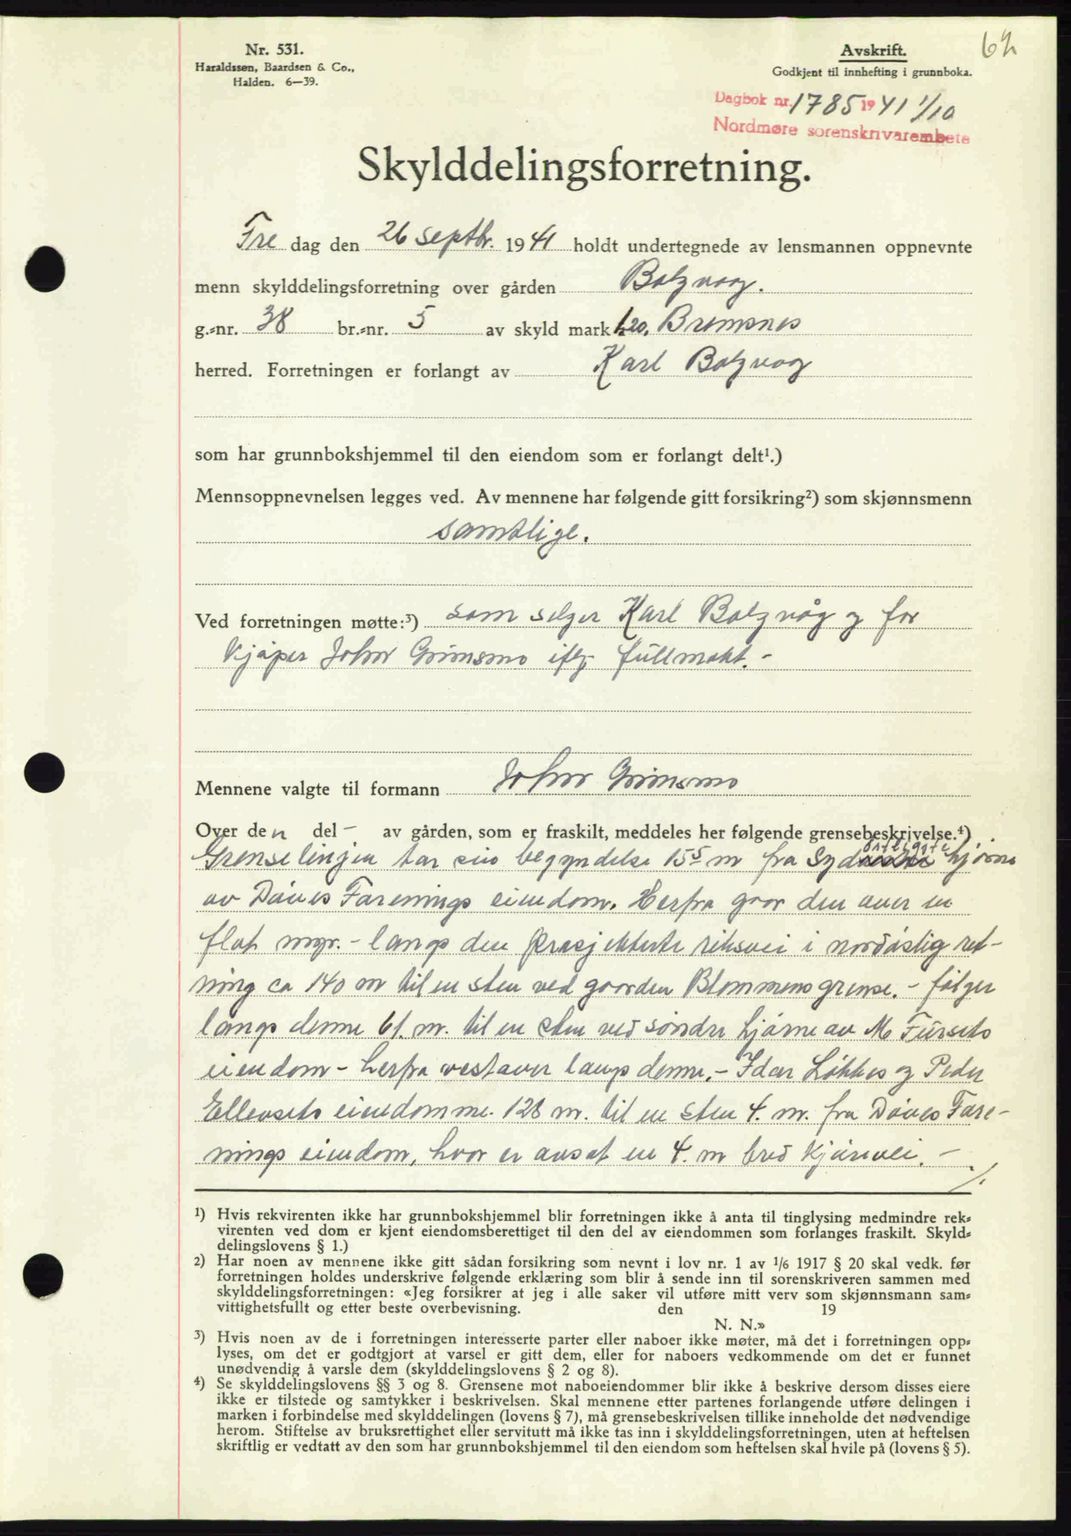 62
Nr. 531.
Haraldssen, Baardsen & Co.,
Halden. 6—39.
Avskrift.
Godkjent til innhefting i grunnboka.
Dagbok nr. 1785 1941 1/10
Nordmøre sorenskrivarembete
Skylddelingsforretning.
Fre dag den 26 septbr. 1941 holdt undertegnede av lensmannen oppnevnte
menn skylddelingsforretning over gården Bolgvag.
g.-nr. 38 br.-nr. 5 av skyld mark 1.20. Bremsnes
herred. Forretningen er forlangt av Karl Bolgvag
som har grunnbokshjemmel til den eiendom som er forlangt delt¹.)
Mennsoppnevnelsen legges ved. Av mennene har følgende gitt forsikring²) som skjønnsmenn
samtlige.
Ved forretningen møtte:³) som selger Karl Bolgvåg og for
kjøper John Grimsmo iflg fullmakt. -
Mennene valgte til formann John Grimsmo
Over den del - av gården, som er fraskilt, meddeles her følgende grensebeskrivelse.⁴)
Grenselinjen tar sin begyndelse 155 m fra Syd hjørne
av Døves Forenings eiendom. Herfra gaar den over en
flat myr. - langs den prosjekterte riksvei i nordøstlig ret-
ning ca 140 m til en sten ved gaarden Blommens grense. - følger
langs denne 61. m. til en sten ved søndre hjørne av M. Fursets
eiendom - herfra vestover langs denne. - Idar Løkkes og Peder
Ellevsets eiendomme. 128 m. til en sten 4. m. fra Døves Fore-
nings eiendom, hvor er avsat en 4. m bred kjørevei. -
./.
¹) Hvis rekvirenten ikke har grunnbokshjemmel blir forretningen ikke å anta til tinglysing medmindre rek-
virenten ved dom er kjent eiendomsberettiget til den del av eiendommen som forlanges fraskilt. Skyld-
delingslovens § 1.)
²) Har noen av mennene ikke gitt sådan forsikring som nevnt i lov nr. 1 av 1/6 1917 § 20 skal vedk. før
forretningen holdes underskrive følgende erklæring som blir å sende inn til sorenskriveren sammen med
skylddelingsforretningen: «Jeg forsikrer at jeg i alle saker vil utføre mitt verv som skjønnsmann sam-
vittighetsfullt og etter beste overbevisning. den 19
N. N.»
³) Hvis noen av de i forretningen interesserte parter eller naboer ikke møter, må det i forretningen opp-
lyses, om det er godtgjort at varsel er gitt dem, eller for naboers vedkommende om det er funnet
unødvendig å varsle dem (skylddelingslovens § 2 og 8).
⁴) Se skylddelingslovens §§ 3 og 8. Grensene mot naboeiendommer blir ikke å beskrive dersom disses eiere
ikke er tilstede og samtykker i beskrivelsen. Skal mennene etter partenes forlangende utføre delingen i
marken i forbindelse med skylddelingen (lovens § 7), må grensebeskrivelsen tillike inneholde det nødvendige
herom. Stiftelse av bruksrettighet eller servitutt må ikke tas inn i skylddelingsforretningen, uten at heftelsen
skriftlig er vedtatt av den som har grunnbokshjemmel til den eiendom som heftelsen skal hvile på (lovens § 5).